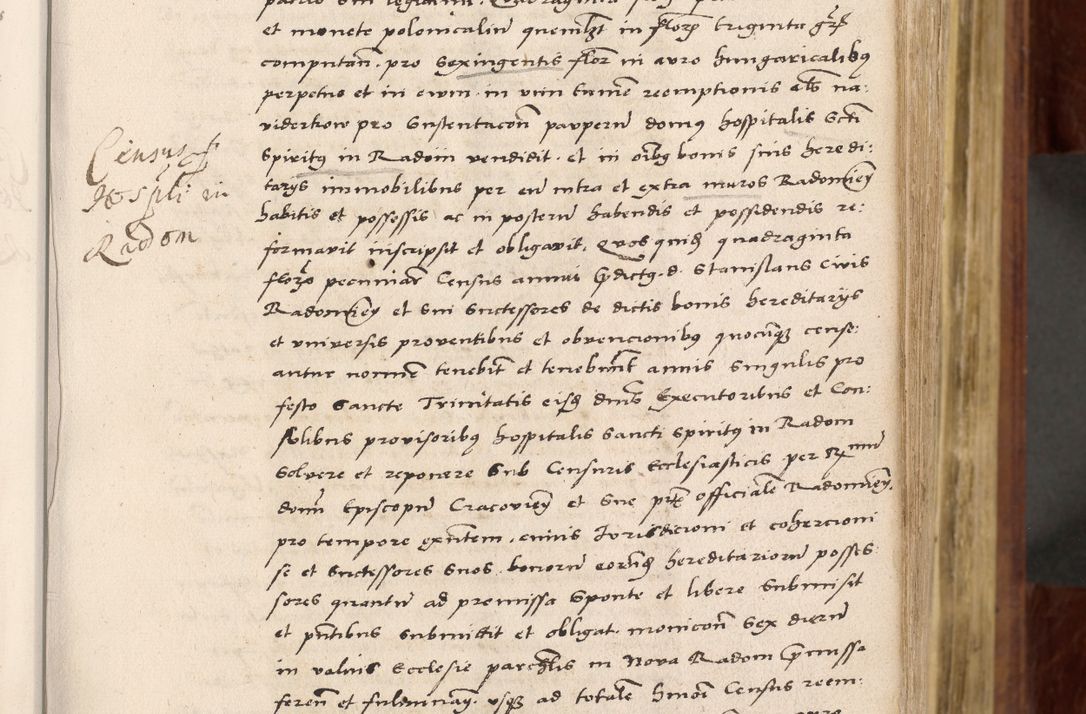 et monete polonicaliu quemlzt in florz triginta grz
computan. pro sexingentis flor in auro hungaricalibus
perpetuo et in eum in vim tamen reemptionis als na:
viderkow pro sustentacon pauperu domus hospitalis Scti
Spiritus in Radom vendidit. et in oibus bonis suis heredi:
tarijs immobilibus per eu intra et extra muros Radomien
habitis et possessis ac in posteru habendis et possidendis re:
formavit inscripsit et obligavit. Quosquid quadraginta
florz pecuniar Census annui predictus d. Stanislaus Civis
Radomien et sui successores de dictis bonis hereditarijs
et universis proventibus et obvencionibus quocunqz cense:
antur nomine tenebit et tenebunt annis singulis pro
festo Sancte Trinitatis eisd dnis Executoribus et Con:
sulibus provisoribus hospitalis Sancti Spiritus in Radom
Solvere et reponere sub Censuris Ecclesiasticis per Rmum
domn Episcopu Cracovien et sue officiale Radomien.
pro tempore exntem. cuius Jurisdicioni et cohercioni
se et successores suos. bonoru eorund hereditarioru posses:
sores quantu ad premissa sponte et libere submisit
et pntibus submittit et obligat. monicon sex dieru
in valvis Ecclesie parchlis in Nova Radom premissa
feren et fulminan. usqz ad totale hmoi Census reem:
Census
Hospli in
Radom